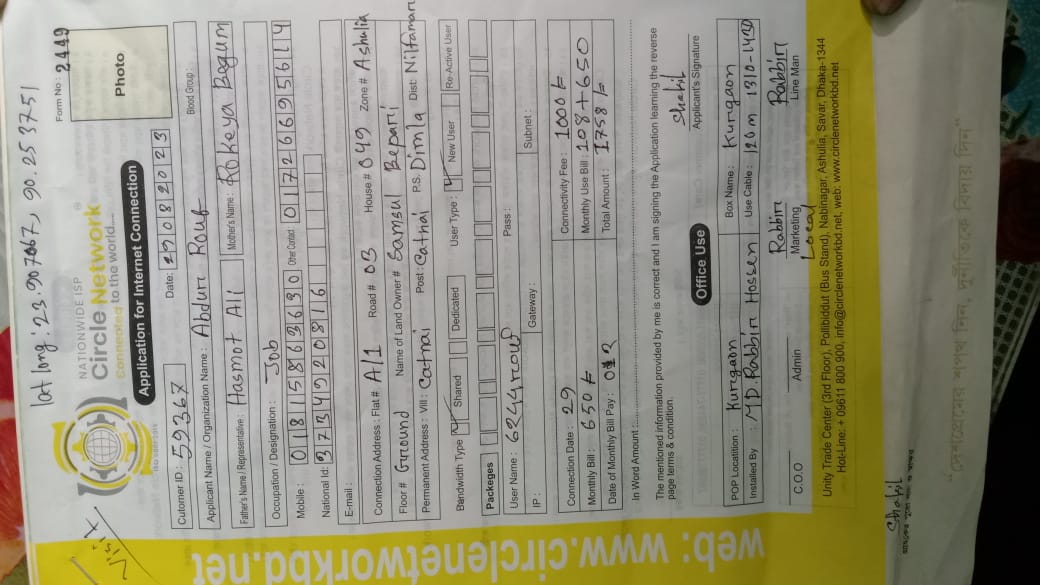 lat long: 23.907067, 90.253751
Visit
NATIONWIDE ISP
Circle Network
Connected to the world...
Form No : 2449
Application for Internet Connection
Photo
Cutomer ID : 59367
Date: 29082023
Blood Group :
Applicant Name / Organization Name : Abdur Rouf
Father's Name / Representative : Hasmot Ali Mother's Name : Rokeya Begum
Occupation / Designation : Job
Mobile : 01815863690 Other Contact : 01726695614
National Id: 3734920816
E-mail :
Connection Address : Flat # A/1 Road # 03 House # 049 Zone # Ashulia
Floor # Ground Name of Land Owner # Samsul Bepari
Permanent Address : Vill : Catnai Post : Catnai P.S. Dimla Dist: Nilfamari
Bandwidth Type Shared Dedicated User Type : New User Re-Active User
Packeges
User Name : 6244rouf Pass :
IP : Gateway : Subnet :
Connection Date : 29 Connectivity Fee : 1000 ৳
Monthly Bill : 650 ৳ Monthly Use Bill : 108+650
Date of Monthly Bill Pay : Total Amount : 1758 ৳
In Word Amount :
The mentioned information provided by me is correct and I am signing the Application learning the reverse
page terms & condition.
Shakil
Applicant's Signature
Office Use
POP Locatition : Kurgaon Box Name : Kurgaon
Installed By : MD. Rabbin Hossen Use Cable : 120m 1310-1430
Rabbin Rabbin
C.O.O Admin Marketing Line Man
Local
Unity Trade Center (3rd Floor), Pollibiddut (Bus Stand), Nabinagar, Ashulia, Savar, Dhaka-1344
Hot-Line: + 09611 800 900, info@circlenetworkbd.net, web: www.circlenetworkbd.net
web: www.circlenetworkbd.net
Shakil
“দেশপ্রেমের শপথ নিন, দুর্নীতিকে বিদায় দিন”